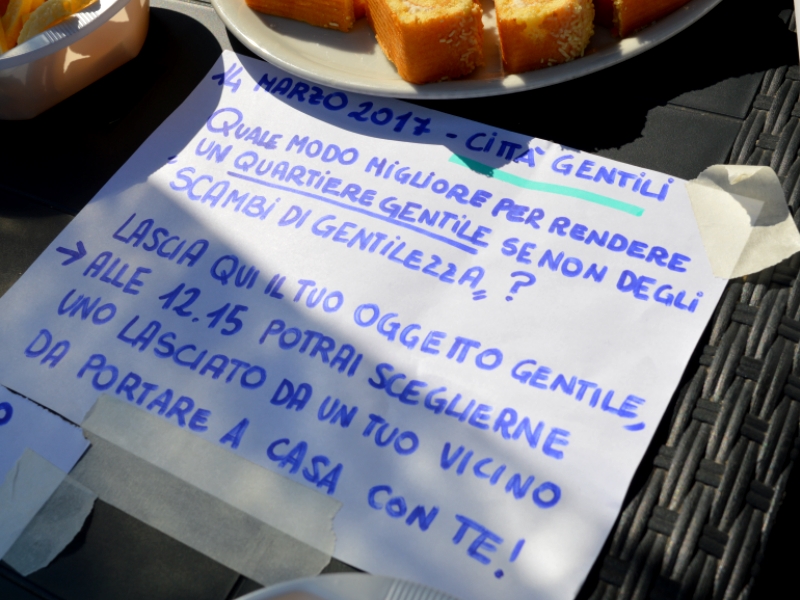 14 MARZO 2017 - CITTÀ GENTILI
QUALE MODO MIGLIORE PER RENDERE
UN QUARTIERE GENTILE SE NON DEGLI
SCAMBI DI GENTILEZZA,, ?
LASCIA QUI IL TUO OGGETTO GENTILE,,
→ ALLE 12.15 POTRAI SCEGLIERNE
UNO LASCIATO DA UN TUO VICINO
DA PORTARE A CASA CON TE!
O